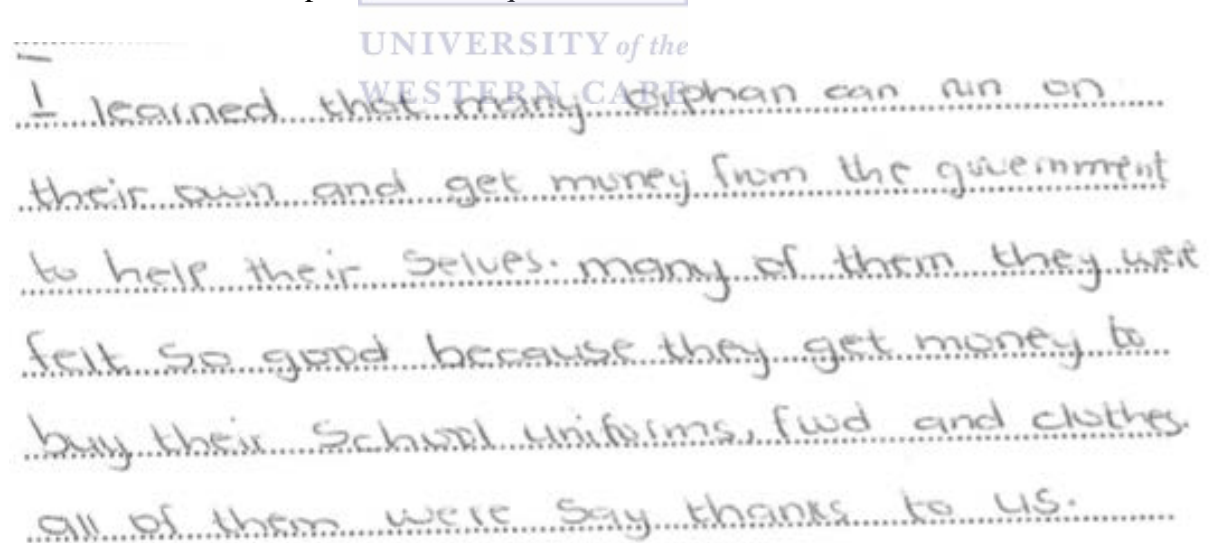 UNIVERSITY of the
WESTERN CAPE
I learned that many orphan can run on
their own and get money from the government
to help their selves. many of them they were
felt so good because they get money to
buy their School uniforms, food and clothes.
all of them were Say thanks to us.